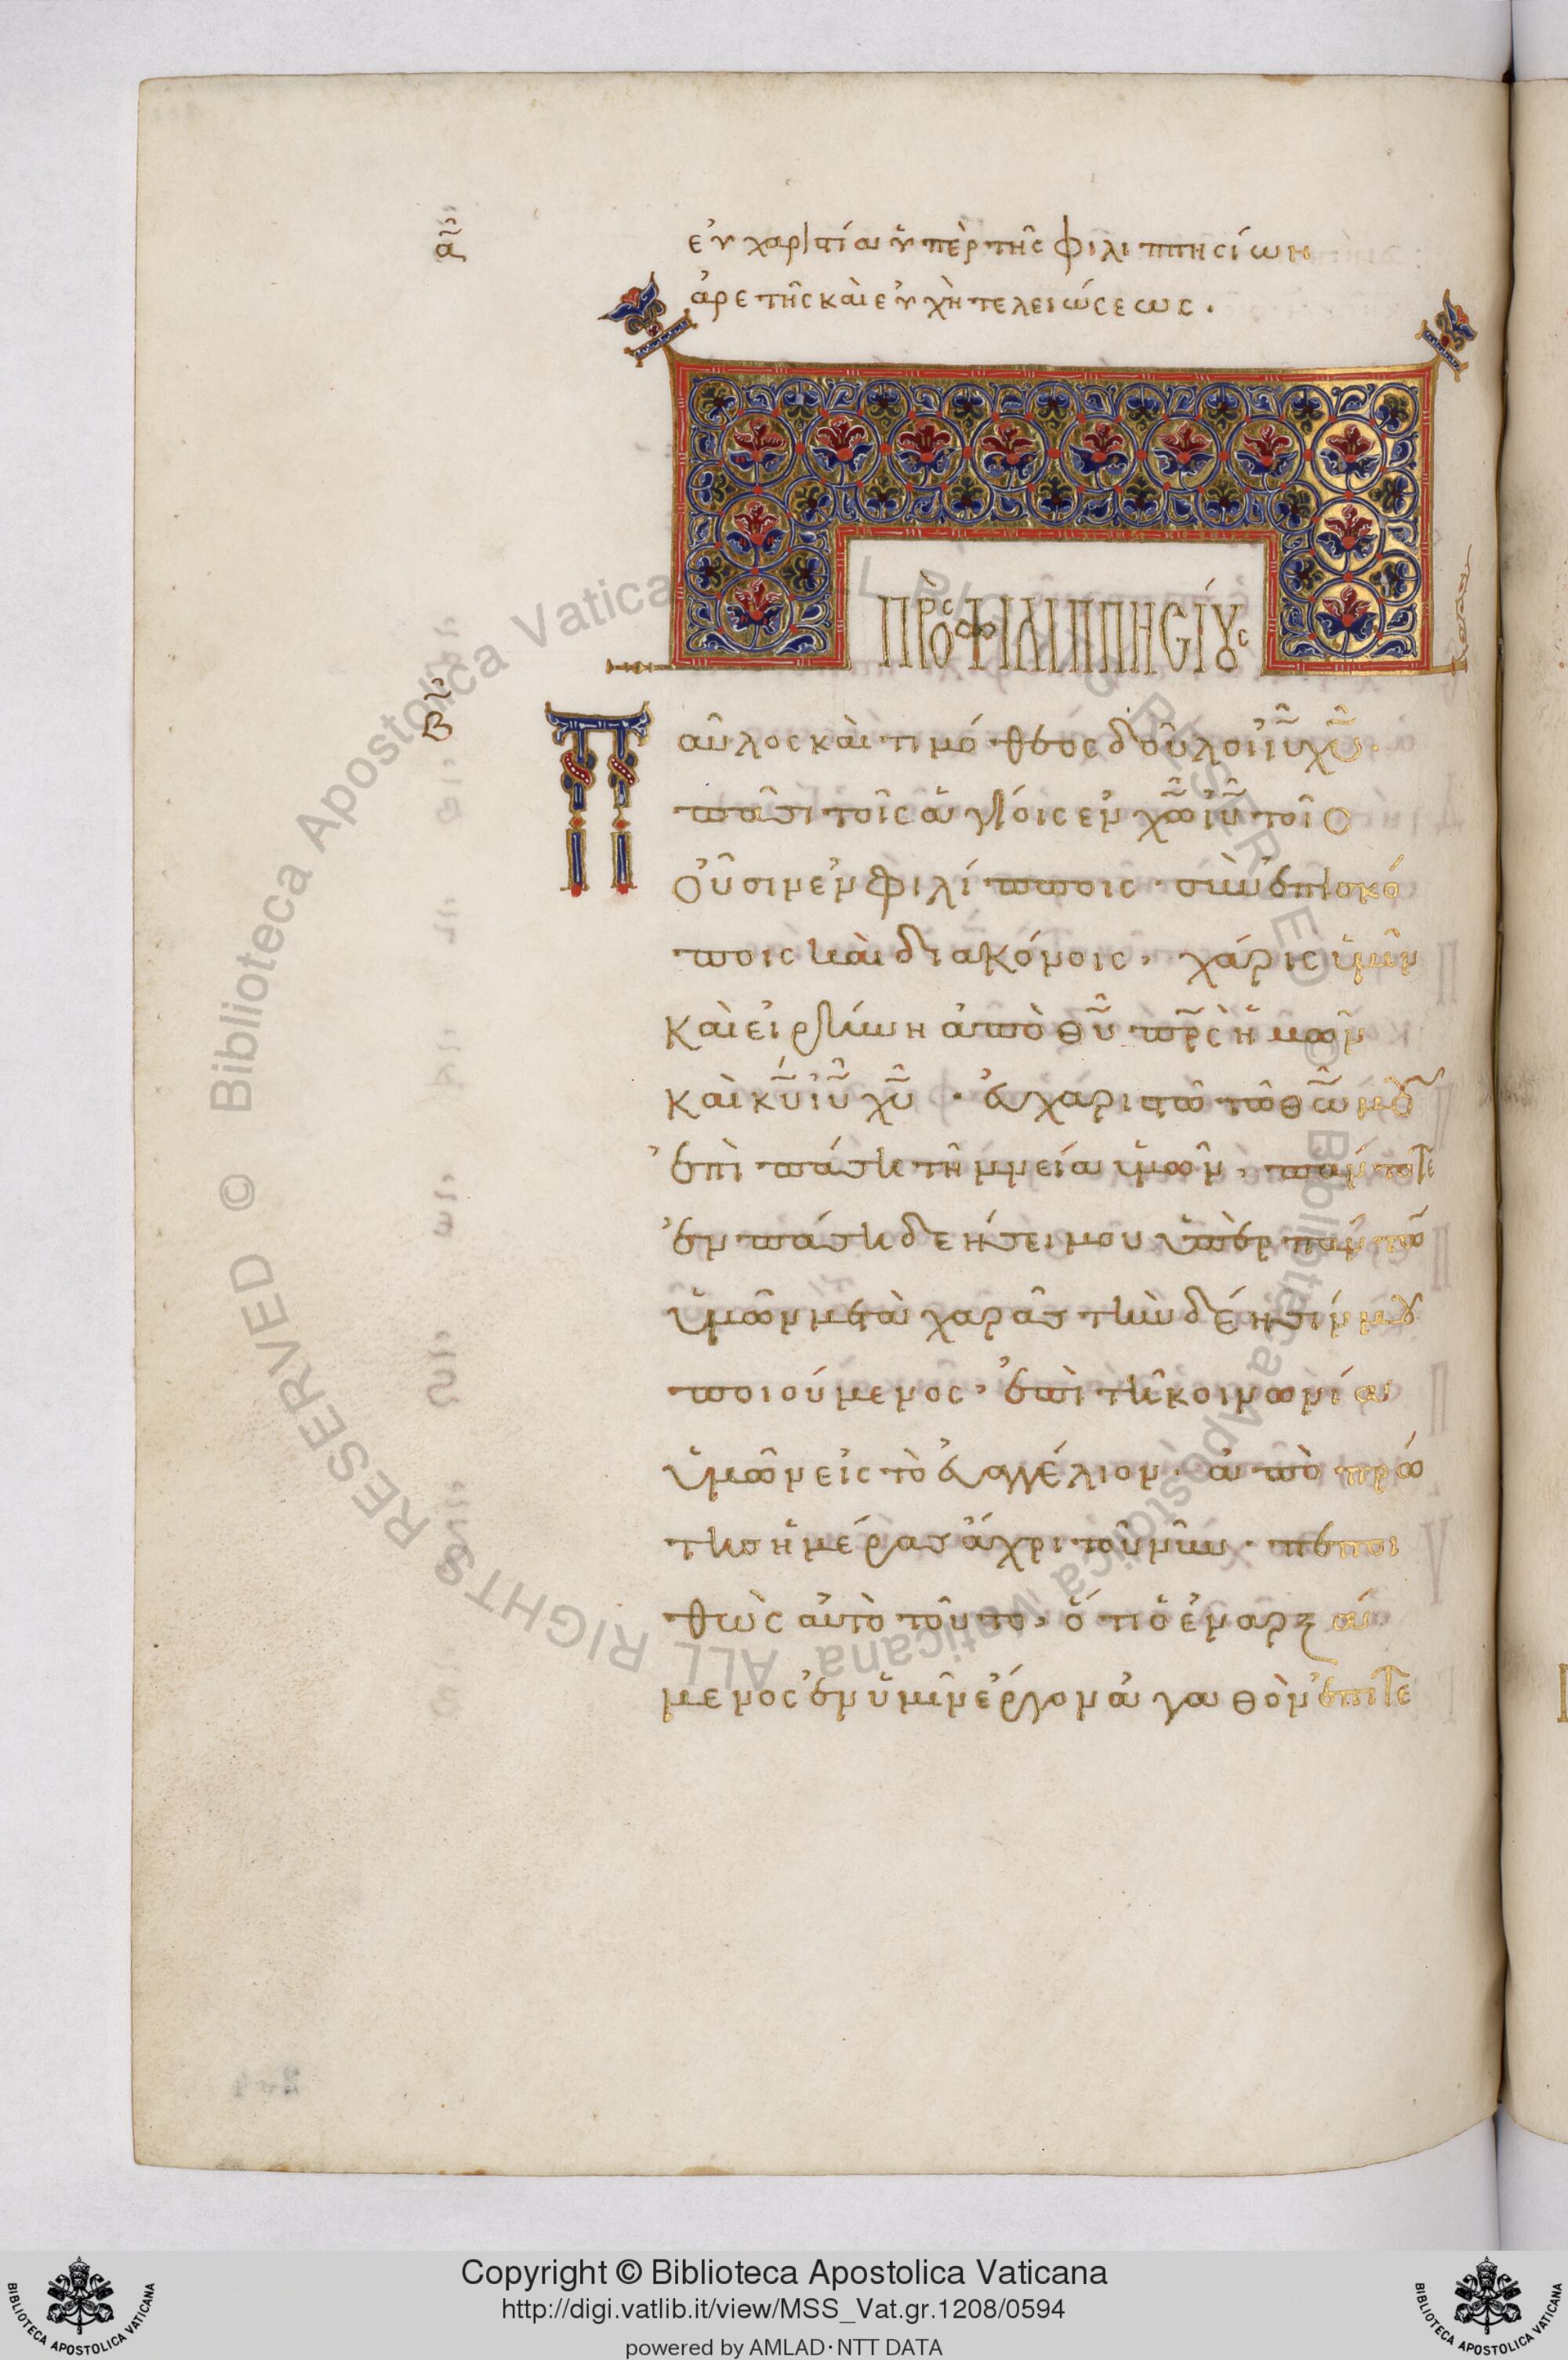 α
εὐχαριστία ὑπὲρ τῆς φιλιππησίων
ἀρετῆς καὶ εὐχὴ τελειώσεως.
ΠΡΟΣ ΦΙΛΙΠΠΗΣΙΟΥΣ
Β
Παῦλος καὶ τιμόθεος δοῦλοι ἰῦ χῦ·
πᾶσι τοῖς ἁγίοις ἐν χῶ ἰῦ τοῖσ
οὖσιν ἐν φιλίπποις· σὺν ἐπισκό
ποις καὶ διακόνοις, χάρις ὑμῖν
καὶ εἰρήνη ἀπὸ θῦ πρς ἡμῶν
καὶ κῦ ἰῦ χῦ· εὐχαριστῶ τῶ θῶ μου
ἐπὶ πάση τῆ μνεία ὑμῶν, πάντοτε
ἐν πάση δεήσει μου ὑπὲρ πάντων
ὑμῶν μετὰ χαρᾶς τὴν δέησίν μου
ποιούμενος, ἐπὶ τῆ κοινωνία
ὑμῶν εἰς τὸ εὐαγγέλιον· ἀπὸ πρώ
της ἡμέρας ἄχρι τοῦ νῦν· πεποι
θὼς αὐτὸ τοῦτο, ὅτι ὁ ἐναρξά
μενος ἐν ὑμῖν ἔργον ἀγαθὸν ἐπιτε
© Biblioteca Apostolica Vaticana ALL RIGHTS RESERVED
© Biblioteca Apostolica Vaticana ALL RIGHTS RESERVED
Copyright © Biblioteca Apostolica Vaticana
http://digi.vatlib.it/view/MSS_Vat.gr.1208/0594
powered by AMLAD·NTT DATA
BIBLIOTECA APOSTOLICA VATICANA
BIBLIOTECA APOSTOLICA VATICANA